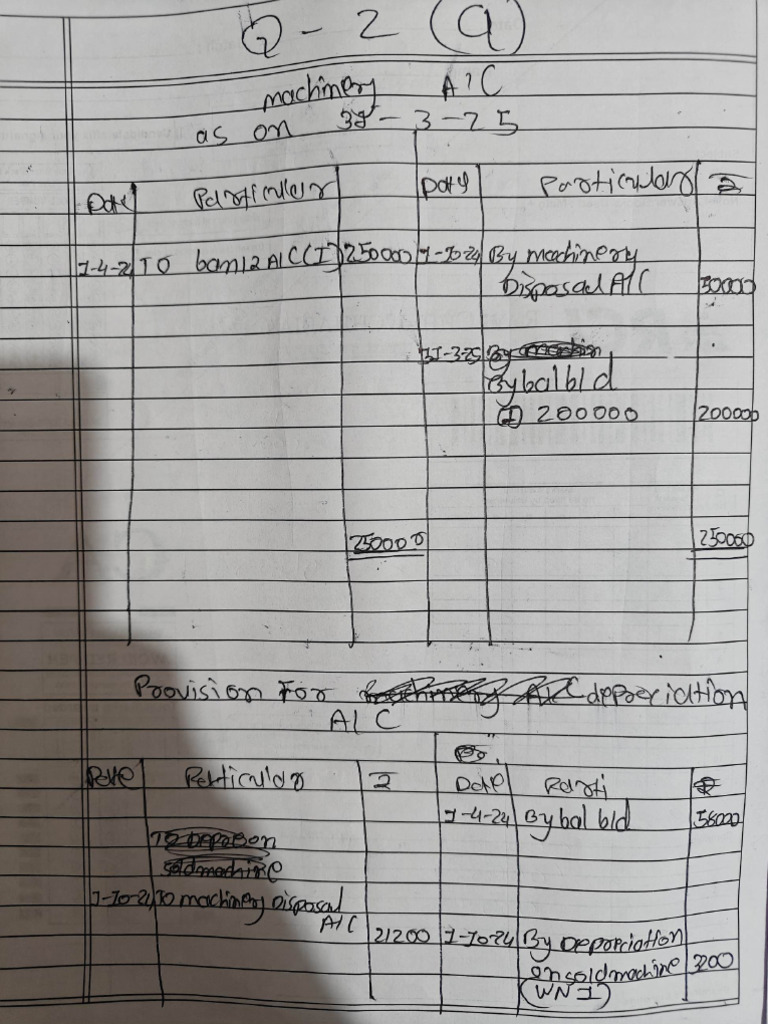 Q - 2 (a)
machinery A/C
as on 31-3-25
Date Particular Date Particular ₹
1-4-2 TO bank A/C (I) 250000 1-10-24 By machinery
Disposal A/C 50000
31-3-25 By
By bal b/d
(I) 200000 200000
250000 250000
Provision For depreciation
A/C
Date Particular ₹ Date Parti ₹
1-4-24 By bal b/d 56000
1-10-24 TO machinery Disposal
A/C 21200 1-10-24 By Deporciation
on sold machine 3200
(WN I)